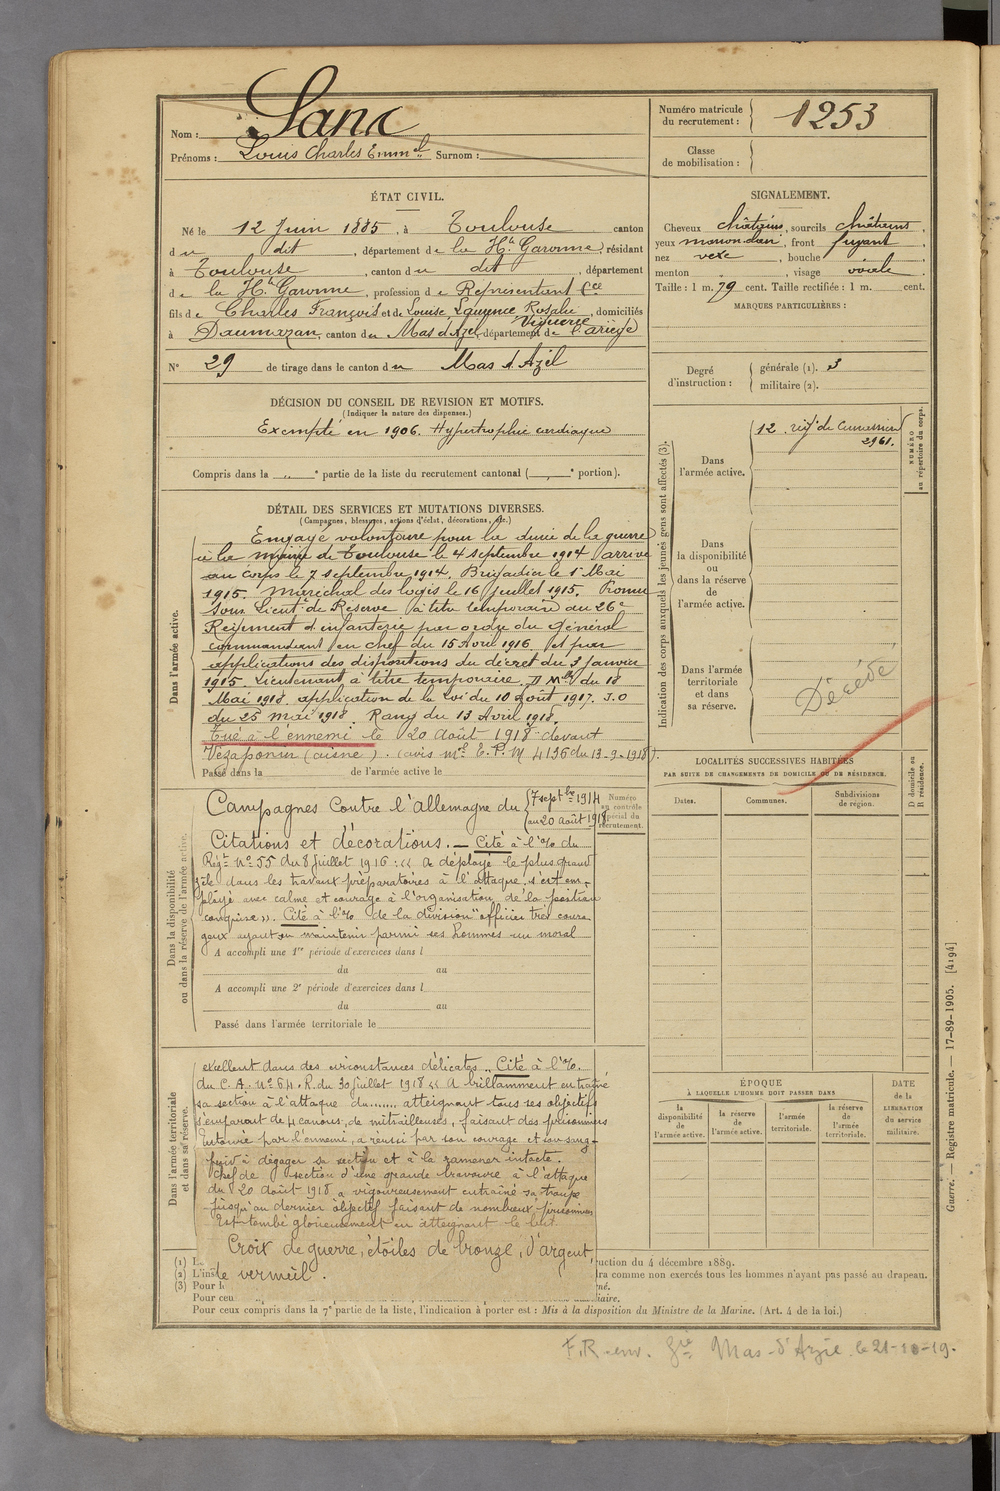 Nom : Sanc
Prénoms : Louis Charles Emm^el Surnom :
Numéro matricule du recrutement : 1253
Classe de mobilisation :
ÉTAT CIVIL.
Né le 12 Juin 1885, à Toulouse canton
du dit, département de la H^te Garonne, résidant
à Toulouse, canton du dit, département
de la H^te Garonne, profession de Représentant C^ce
fils de Charles François et de Louise Laurence Rosalie Viguerie, domiciliés
à Daumazan, canton du Mas d'Azil, département de l'Ariège
N° 29 de tirage dans le canton du Mas d'Azil
SIGNALEMENT.
Cheveux châtains, sourcils châtains,
yeux marron, front fuyant
nez vexe, bouche
menton , visage ovale
Taille : 1 m. 79 cent. Taille rectifiée : 1 m. cent.
MARQUES PARTICULIÈRES :
Degré d'instruction : générale (1). 3
militaire (2).
DÉCISION DU CONSEIL DE REVISION ET MOTIFS.
(Indiquer la nature des dispenses.)
Exempté en 1906. Hypertrophie cardiaque
Compris dans la " e partie de la liste du recrutement cantonal ( e portion).
DÉTAIL DES SERVICES ET MUTATIONS DIVERSES.
(Campagnes, blessures, actions d'éclat, décorations, etc.)
Dans l'armée active.
Engagé volontaire pour la durée de la guerre
à la mairie de Toulouse le 4 septembre 1914 arrivé
au corps le 7 septembre 1914. Brigadier le 1^er Mai
1915. Maréchal des logis le 16 juillet 1915. Promu
Sous Lieut^t de Réserve à titre temporaire au 26^e
Régiment d'infanterie par ordre du Général
commandant en chef du 15 Avril 1916 et par
applications des dispositions du décret du 3 janvier
1915. Lieutenant à titre temporaire. D M^lle du 18
Mai 1918. application de la loi du 10 août 1917. J.O
du 25 mai 1918. Rang du 13 Avril 1918.
Tué à l'ennemi le 20 août 1918 devant
Vézaponin (aisne). (avis M^el E.P. M 4136 du 13-9-1918).
Passé dans la de l'armée active le
Indication des corps auxquels les jeunes gens sont affectés (3).
Dans l'armée active.
12 rég^t de Cuirassiers
2961.
NUMÉRO au répertoire du corps.
Dans la disponibilité ou dans la réserve de l'armée active.
Dans l'armée territoriale et dans sa réserve.
Décédé
LOCALITÉS SUCCESSIVES HABITÉES
PAR SUITE DE CHANGEMENTS DE DOMICILE OU DE RÉSIDENCE.
Dates. Communes. Subdivisions de région. D domicile ou R résidence.
Dans la disponibilité ou dans la réserve de l'armée active.
Campagnes Contre l'allemagne du 7 sept^bre 1914
au 20 août 1918.
Numéro au contrôle spécial du recrutement.
Citations et décorations. — Cité à l'o/ du
Rég^t N° 55 du 8 juillet 1916 : « A déployé le plus grand
zèle dans les travaux préparatoires à l'attaque, s'est em-
ployé avec calme et courage à l'organisation de la position
conquise ». Cité à l'o/ de la division "officier très coura
geux ayant su maintenir parmi ses hommes un moral
A accompli une 1^re période d'exercices dans l
du au
A accompli une 2^e période d'exercices dans l
du au
Passé dans l'armée territoriale le
Dans l'armée territoriale et dans sa réserve.
excellent dans des circonstances délicates ". Cité à l'o/.
du C.A. N° 64.R. du 30 juillet 1918 « A brillamment entraîné
sa section à l'attaque du ....... atteignant tous ses objectifs
s'emparant de 4 canons, de mitrailleuses, faisant des prisonniers
Entourée par l'ennemi, a réussi par son courage et son sang-
froid à dégager sa section et à la ramener intacte.
Chef de section d'une grande bravoure à l'attaque
du 20 août 1918 a vigoureusement entraîné sa troupe
jusqu'au dernier objectif faisant de nombreux prisonniers
Est tombé glorieusement en atteignant le but.
Croix de guerre, étoiles de bronze, d'argent,
de vermeil.
ÉPOQUE
À LAQUELLE L'HOMME DOIT PASSER DANS
la disponibilité de l'armée active. la réserve de l'armée active. l'armée territoriale. la réserve de l'armée territoriale.
DATE de la LIBÉRATION du service militaire.
(1) L uction du 4 décembre 1889.
(2) L'ins dra comme non exercés tous les hommes n'ayant pas passé au drapeau.
(3) Pour l né.
Pour ceu iliaire.
Pour ceux compris dans la 7^e partie de la liste, l'indication à porter est : Mis à la disposition du Ministre de la Marine. (Art. 4 de la loi.)
Guerre. — Registre matricule. — 17-89-1905. [4194]
F.R env. G^ie Mas-d'Azil le 21-10-19.